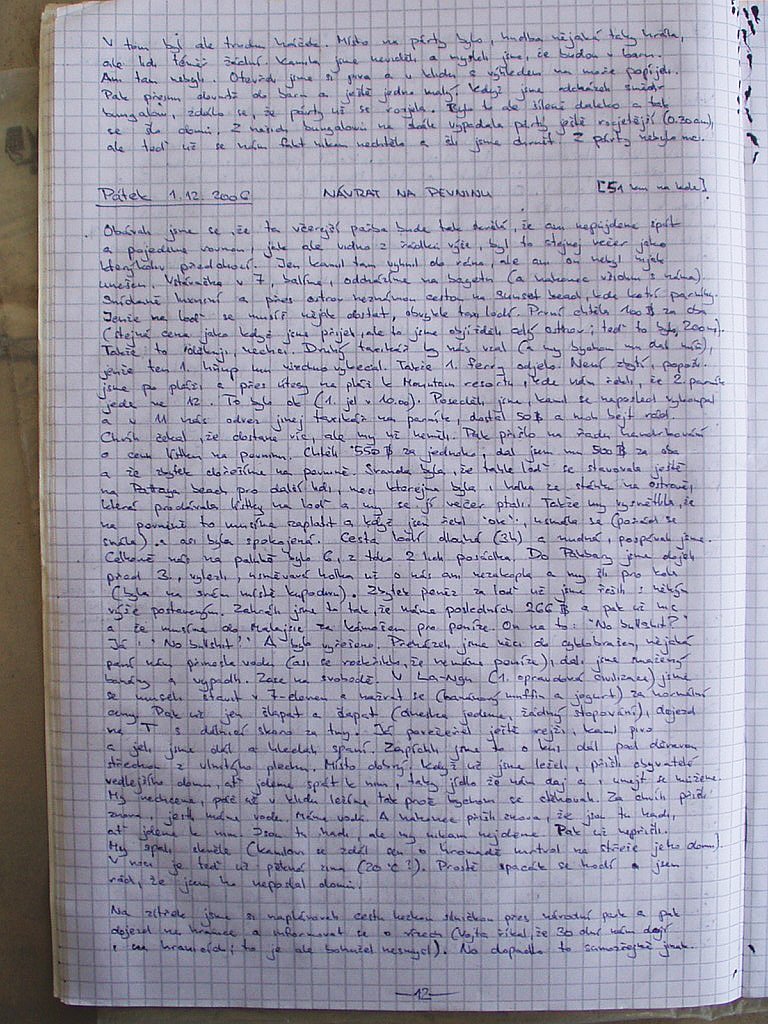 V tom byl ale trochu háček. Místo na párty bylo, hudba nějaká taky hrála,
ale lidi téměř žádní. Kamila jsme neviděli a mysleli jsme, že budou v baru.
Ani tam nebyli. Otevřeli jsme si piva a v klidu s výhledem na moře popíjeli.
Pak přesun dovnitř do baru a ještě jedno malý, když jsme odcházeli
bungalovu, zdálo se, že párty už se rozjela. Bylo to ale šíleně daleko a tak
se šlo domů. Z našich bungalovů na skále vypadala párty ještě rozjetější (0.30am),
ale teď už se nám fakt nikam nechtělo a šli jsme chrnět. Z párty nebylo nic.
Pátek 1.12.2006 NÁVRAT NA PEVNINU [51 km na kole]
Obávali jsme se, že ta včerejší pařba bude tak divoká, že ani nepůjdeme spát
a pojedeme rovnou, jak ale vidno z řádků výše, byl to stejnej večer jako
kterýkoliv předchozí. Jen Kamil tam vyhnil do rána, ale ani on nebyl nijak
unešen. Vstáváme v 7, balíme, odchází me na bagetu (a nakonec všichni s náma).
Snídaně luxusní a přes ostrov neznámou cestou na sunset beach, kde kotví parníky.
Jenže na loď se musíš nějak dostat, obvykle taxi lodí. První chtěl 100 ฿ za oba
(stejná cena jako když jsme přijeli, ale to jsme objížděli celý ostrov; teď to bylo 200 m).
Takže to nechci. Druhej taxikář by nás vzal (a my bychom mu dali míň),
jenže ten 1. mu viditelně vynadal. Takže 1. ferry odjelo. Není zbytí, popošli
jsme po pláži a přes útesy na pláž k Mountain resortu, kde nám řekli, že 2. parník
jede ve 12. To bylo ok (1. jel v 10.00). Poseděli jsme, Kamil se naposled vykoupal
a v 11 nás odvez jinej taxikář na parník, dostal 50 ฿ a moh bejt rád.
Chvíli čekal, že dostane víc, ale my už neměli. Pak přišlo na řadu handrkování
o cenu lístku na pevninu. Chtěli 550 ฿ za jednoho, dal jsem mu 500 ฿ za oba
a že zbytek doložíme na pevnině. Sranda byla, že tahle loď se stavovala ještě
na Pattaya beach pro další lidi, mezi kterejma byla i holka ze stánku na ostrově,
která prodávala lístky na loď a my se jí večer ptali. Takže my vysvětlila, že
na pevnině to musíme zaplatit a když jsem řekl "ok", usmála se (pořád se
smála) a asi byla spokojená. Cesta lodí dlouhá (3h) a nudná, pospávali jsme.
Celkově nás na palubě bylo 6, z toho 2 lidi posádka. Do Pakbary jsme dojeli
před 3., vylezli, usměvavá holka už o nás ani nezakopla a my šli pro kola
(byla na svém místě kupodivu). Zbytek peněz za loď už jsme řešili s někým
výše postaveným. Zahráli jsme to tak, že máme posledních 266 ฿ a pak už nic
a že musíme do Malajsie za kámošem pro peníze. On na to: "No bullshit?"
Já: "No bullshit!" A bylo vyřešeno. Přeházeli jsme věci do cyklobrašen, nějaká
paní nám přinesla vodu (asi se rozkřiklo, že nemáme peníze), dali jsme smažený
banány a vypadli. Zase na svobodě. V La-Ngu (1. opravdová civilizace) jsme
se museli stavit v 7-elevenu a nažrat se (banánový muffin a jogurt) za normální
ceny. Pak už jen šlapat a šlapat (dneska jedeme, žádný stopování), dojezd
na T s dálnicí skoro za tmy. Já povečeřel ještě rejži, Kamil pro
a jeli jsme dál a hledali spaní. Zapíchli jsme to o kus dál pod děravou
střechou z vlnitého plechu. Místo dobrý, když už jsme leželi, přišli obyvatelé
vedlejšího domu, ať jdeme spát k nim, taky jídlo že nám daj a umejt se můžeme.
My nechceme, páč už v klidu ležíme tak proč bychom se stěhovali. Za chvíli přišli
znova, jestli máme vodu. Máme vodu. A nakonec přišli znova, že jsou tu hadi,
ať jdeme k nim. Jsou tu hadi, ale my nikam nejdeme. Pak už nepřišli.
My spali skvěle (Kamilovi se zdál sen o hromadě mrtvol na střeše jeho domu).
V noci je teď už pěkná zima (20°C?). Prostě spacák se hodí a jsem
rád, že jsem ho neposlal domů.
Na zítřek jsme si naplánovali cestu hezkou silničkou přes národní park a pak
dojezd na hranice a informovat se o vízech (Vojta říkal, že 30 dní nám dají
i na hranicích; to je ale bohužel nesmysl). No dopadlo to samozřejmě jinak.
—12—